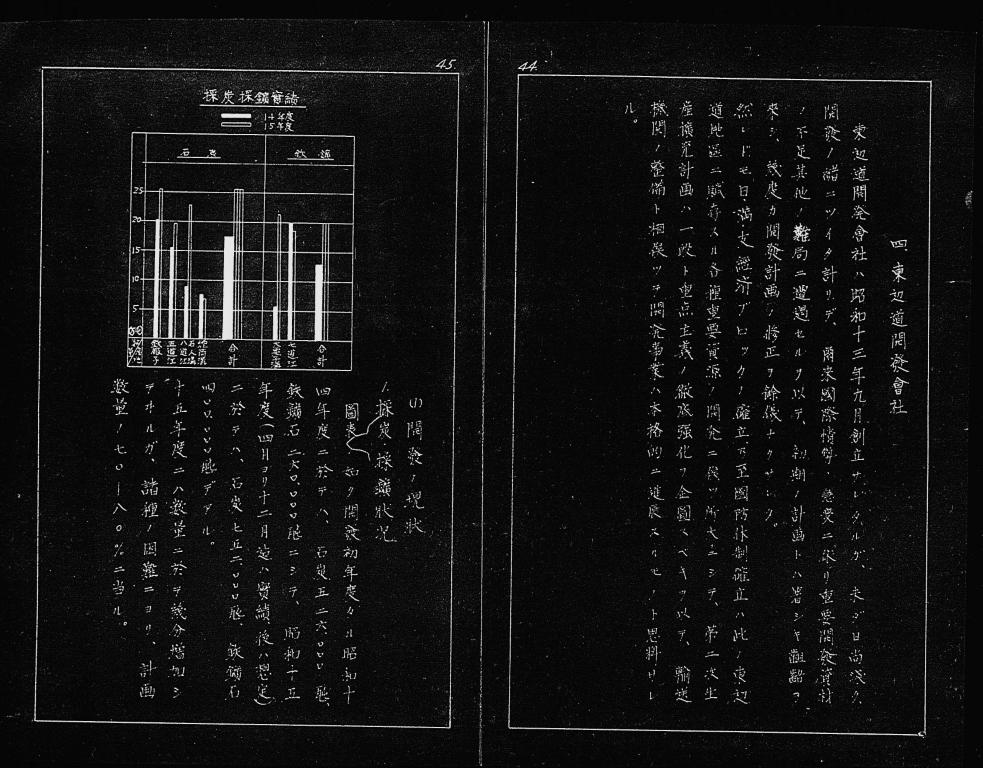 44.
四、東辺道開發會社
東辺道開発會社ハ昭和十三年九月創立サレタルガ、未ダ日尚浅ク
開發ノ緒ニツイタ計リデ、爾来國際情勢ノ急変ニ依リ重要開發資材
ノ不足其他ノ難局ニ遭遇セルヲ以テ、初期ノ計画トハ著シキ齟齬ヲ
來シ、幾度カ開發計画ノ修正ヲ餘儀ナクサレタ。
然レドモ日満支經済ブロックノ確立乃至國防体制確立ハ此ノ東辺
道地區ニ賦存スル各種重要資源ノ開発ニ俟ツ所大ニシテ、第二次生
産擴充計画ハ一段ト重点主義ノ徹底强化ヲ企圖スベキヲ以テ、輸送
機関ノ整備ト相俟ツテ開発事業ハ本格的ニ進展スルモノト思料サレ
ル。
45.
採炭採鑛實績
14年度
15年度
石炭
鉄鑛
25
20
15
10
5
鉄廠子
五道江
八道江
石人溝
合計
大栗子溝
七道江
合計
(1) 開發ノ現狀
1. 採炭、採鑛狀況
圖表ノ如ク開發初年度タル昭和十
四年度ニ於テハ、石炭五二六〇〇〇瓲、
鉄鑛石二六〇〇〇〇瓲ニシテ、昭和十五
年度(四月ヨリ十二月迄ハ實績後ハ想定)
ニ於テハ、石炭七五二〇〇〇瓲、鉄鑛石
四〇〇〇〇〇瓲デアル。
十五年度ニハ数量ニ於テ幾分増加シ
テオルガ、諸種ノ困難ニヨリ、計画
数量ノ七〇―八〇%ニ当ル。